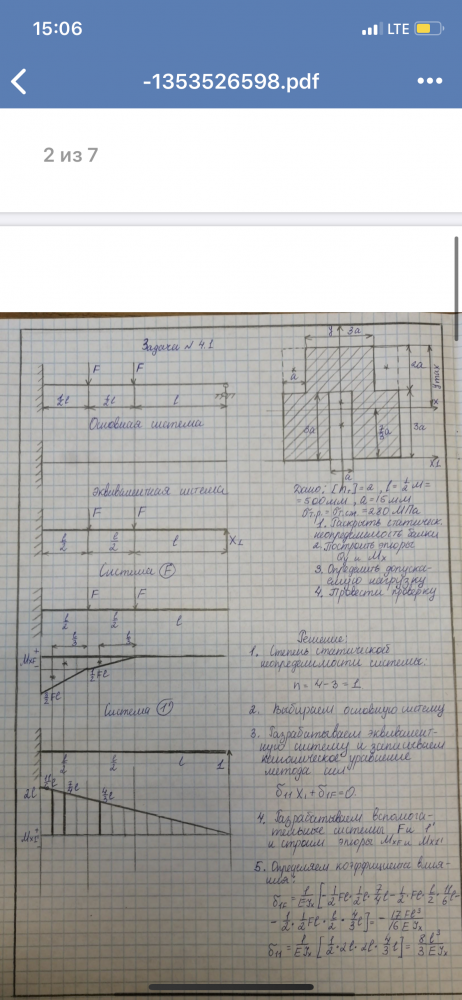 15:06
LTE
-1353526598.pdf
2 из 7
Задача №4.1
F
F
½l
½l
l
Основная система
Эквивалентная система
F
F
l/2
l/2
l
X₁
Система F
F
F
l/2
l/2
l
l/3
MxF
3/2 Fl
1/2 Fl
Система 1°
l/2
l/2
l
1
2l
Mx1
y
3a
2a
a
ymax
x
3a
3a
a
x1
Дано: [nт]=2, l=½м=
=500мм, a=15мм
σт.р.=σт.сж.=280 МПа
1. Раскрыть статическ.
неопределимость балки
2. Построить эпюры
Qy и Mx
3. Определить допуска-
емую нагрузку
4. Провести проверку
Решение:
1. Степень статической
неопределимости системы:
n = 4-3 = 1
2. Выбираем основную систему
3. Разрабатываем эквивалент-
ную систему и записываем
каноническое уравнение
метода сил
δ11 X1 + δ1F = 0
4. Разрабатываем вспомога-
тельные системы F и 1°
и строим эпюры MxF и Mx1
5. Определяем коэффициенты влия-
ния:
δ1F = 1/EJx [-½Fl·½l·7/4l-½·Fl·l/2·11/6l-
-½·½Fl·l/2·4/3l] = -17Fl³/16EJx
δ11 = 1/EJx [½·2l·2l·4/3l] = 8l³/3EJx